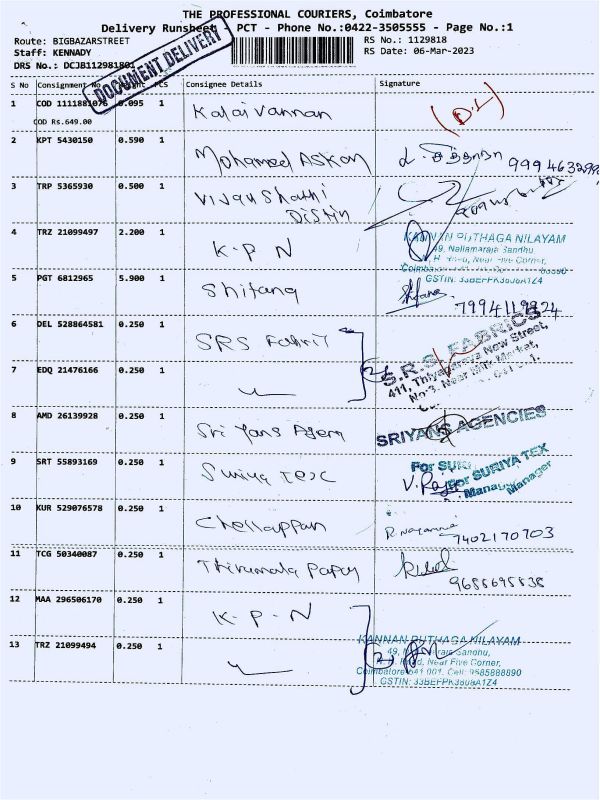 THE PROFESSIONAL COURIERS, Coimbatore
Delivery Runsheet PCT - Phone No.:0422-3505555 - Page No.:1
Route: BIGBAZARSTREET
RS No.: 1129818
Staff: KENNADY
RS Date: 06-Mar-2023
DRS No.: DCJB112981801
DOCUMENT DELIVERY
S No Consignment No PCS Consignee Details Signature
1 COD 1111881076 0.095 1 Kalai Vannan (D.L)
COD Rs.649.00
2 KPT 5430150 0.590 1 Mohameed Askar
3 TRP 5365930 0.500 1 Vijay Shathi
4 TRZ 21099497 2.200 1 K.P.N
KANNAN PUTHAGA NILAYAM
49, Nallamaraja Sandhu,
Near Five Corner,
GSTIN: 33BEFPK3808A1Z4
5 PGT 6812965 5.900 1 Shifana
7994119824
6 DEL 528864581 0.250 1 SRS Fabric
S.R.S. FABRICS
411, Thiyagaraya New Street,
No-3, Near Milk Market,
7 EDQ 21476166 0.250 1
8 AMD 26139928 0.250 1 Sri Yans Agen
SRIYANS AGENCIES
9 SRT 55893169 0.250 1 Suriya Tex
For SURIYA TEX
Manager
10 KUR 529076578 0.250 1 Chellappan
7402170703
11 TCG 50340087 0.250 1 Thirumala Papey
9688695838
12 MAA 296506170 0.250 1 K.P.N
13 TRZ 21099494 0.250 1
KANNAN PUTHAGA NILAYAM
49, Sandhu,
Road, Near Five Corner,
Coimbatore 641 001. Cell: 9585888890
GSTIN: 33BEFPK3808A1Z4